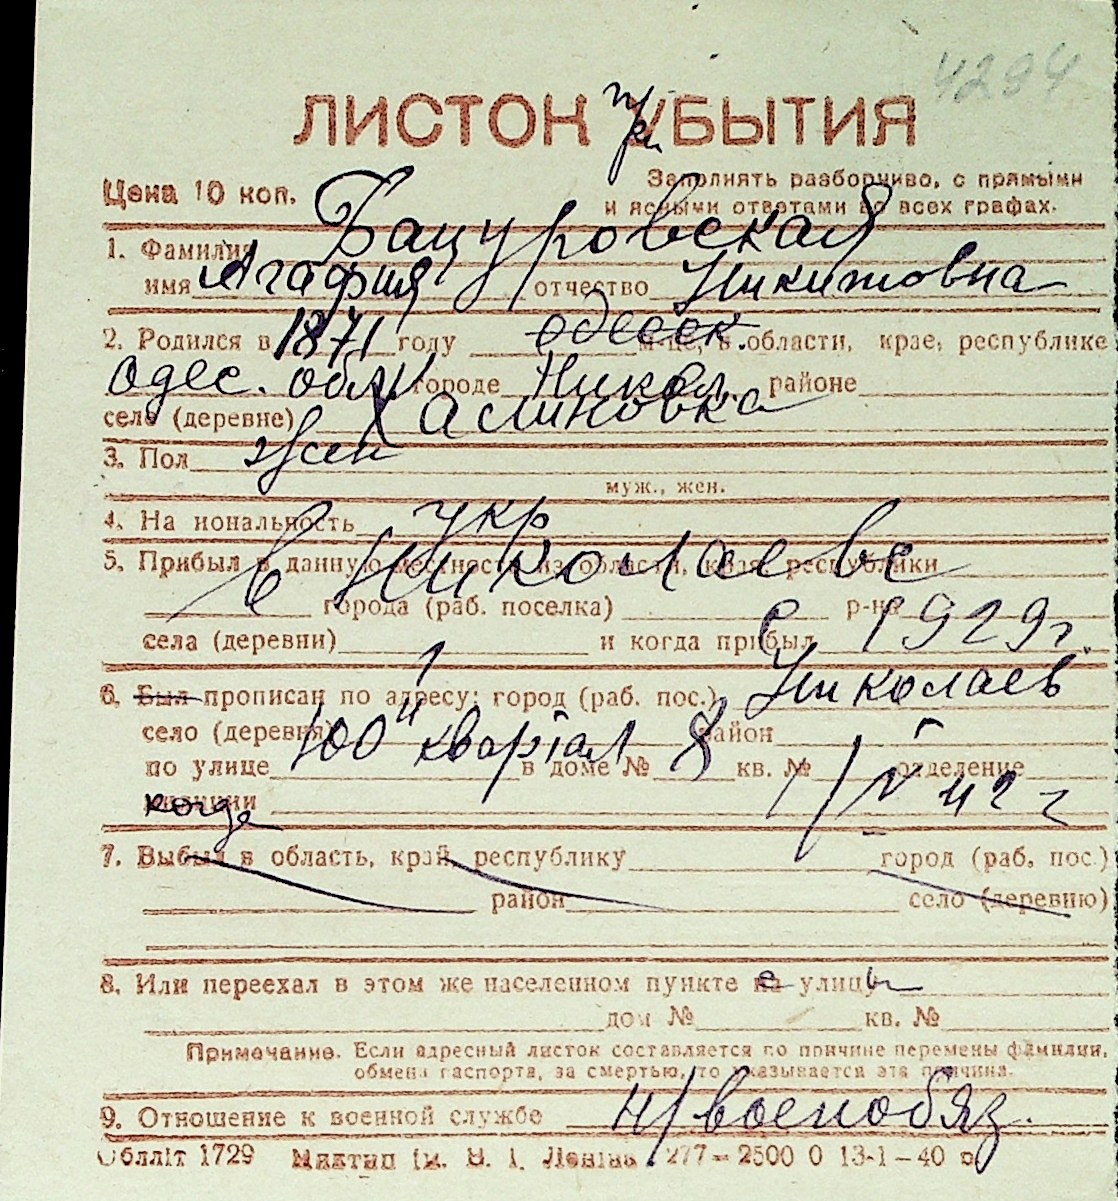 4294
ЛИСТОК при УБЫТИЯ
Цена 10 коп. Заполнять разборчиво, с прямыми
и ясными ответами во всех графах.
1. Фамилия Бацуровская
имя Агафия отчество Никитовна
2. Родился в 1871 году одесск. м-це, в области, крае, республике
Одес. обл. городе Никол. районе
село (деревне) Калиновка
3. Пол жен
муж., жен.
4. На иональность укр
5. Прибыл в данную местность из области, края, республики в Николаеве
города (раб. поселка) р-на
села (деревни) и когда прибыл с 1929 г.
6. Был прописан по адресу: город (раб. пос.) Николаев
село (деревня) район
по улице 100й квартал в доме № 8 кв. № отделение
милиции когда 1/V 42 г
7. Выбыл в область, край, республику город (раб. пос.)
район село (деревню)
8. Или переехал в этом же населенном пункте на с улицы
дом № кв. №
Примечание. Если адресный листок составляется по причине перемены фамилии,
обмена паспорта, за смертью, то указывается эта причина.
9. Отношение к военной службе н/военобяз.
Облліт 1729 ім. В. І. Леніна 277—2500 0 13-1—40